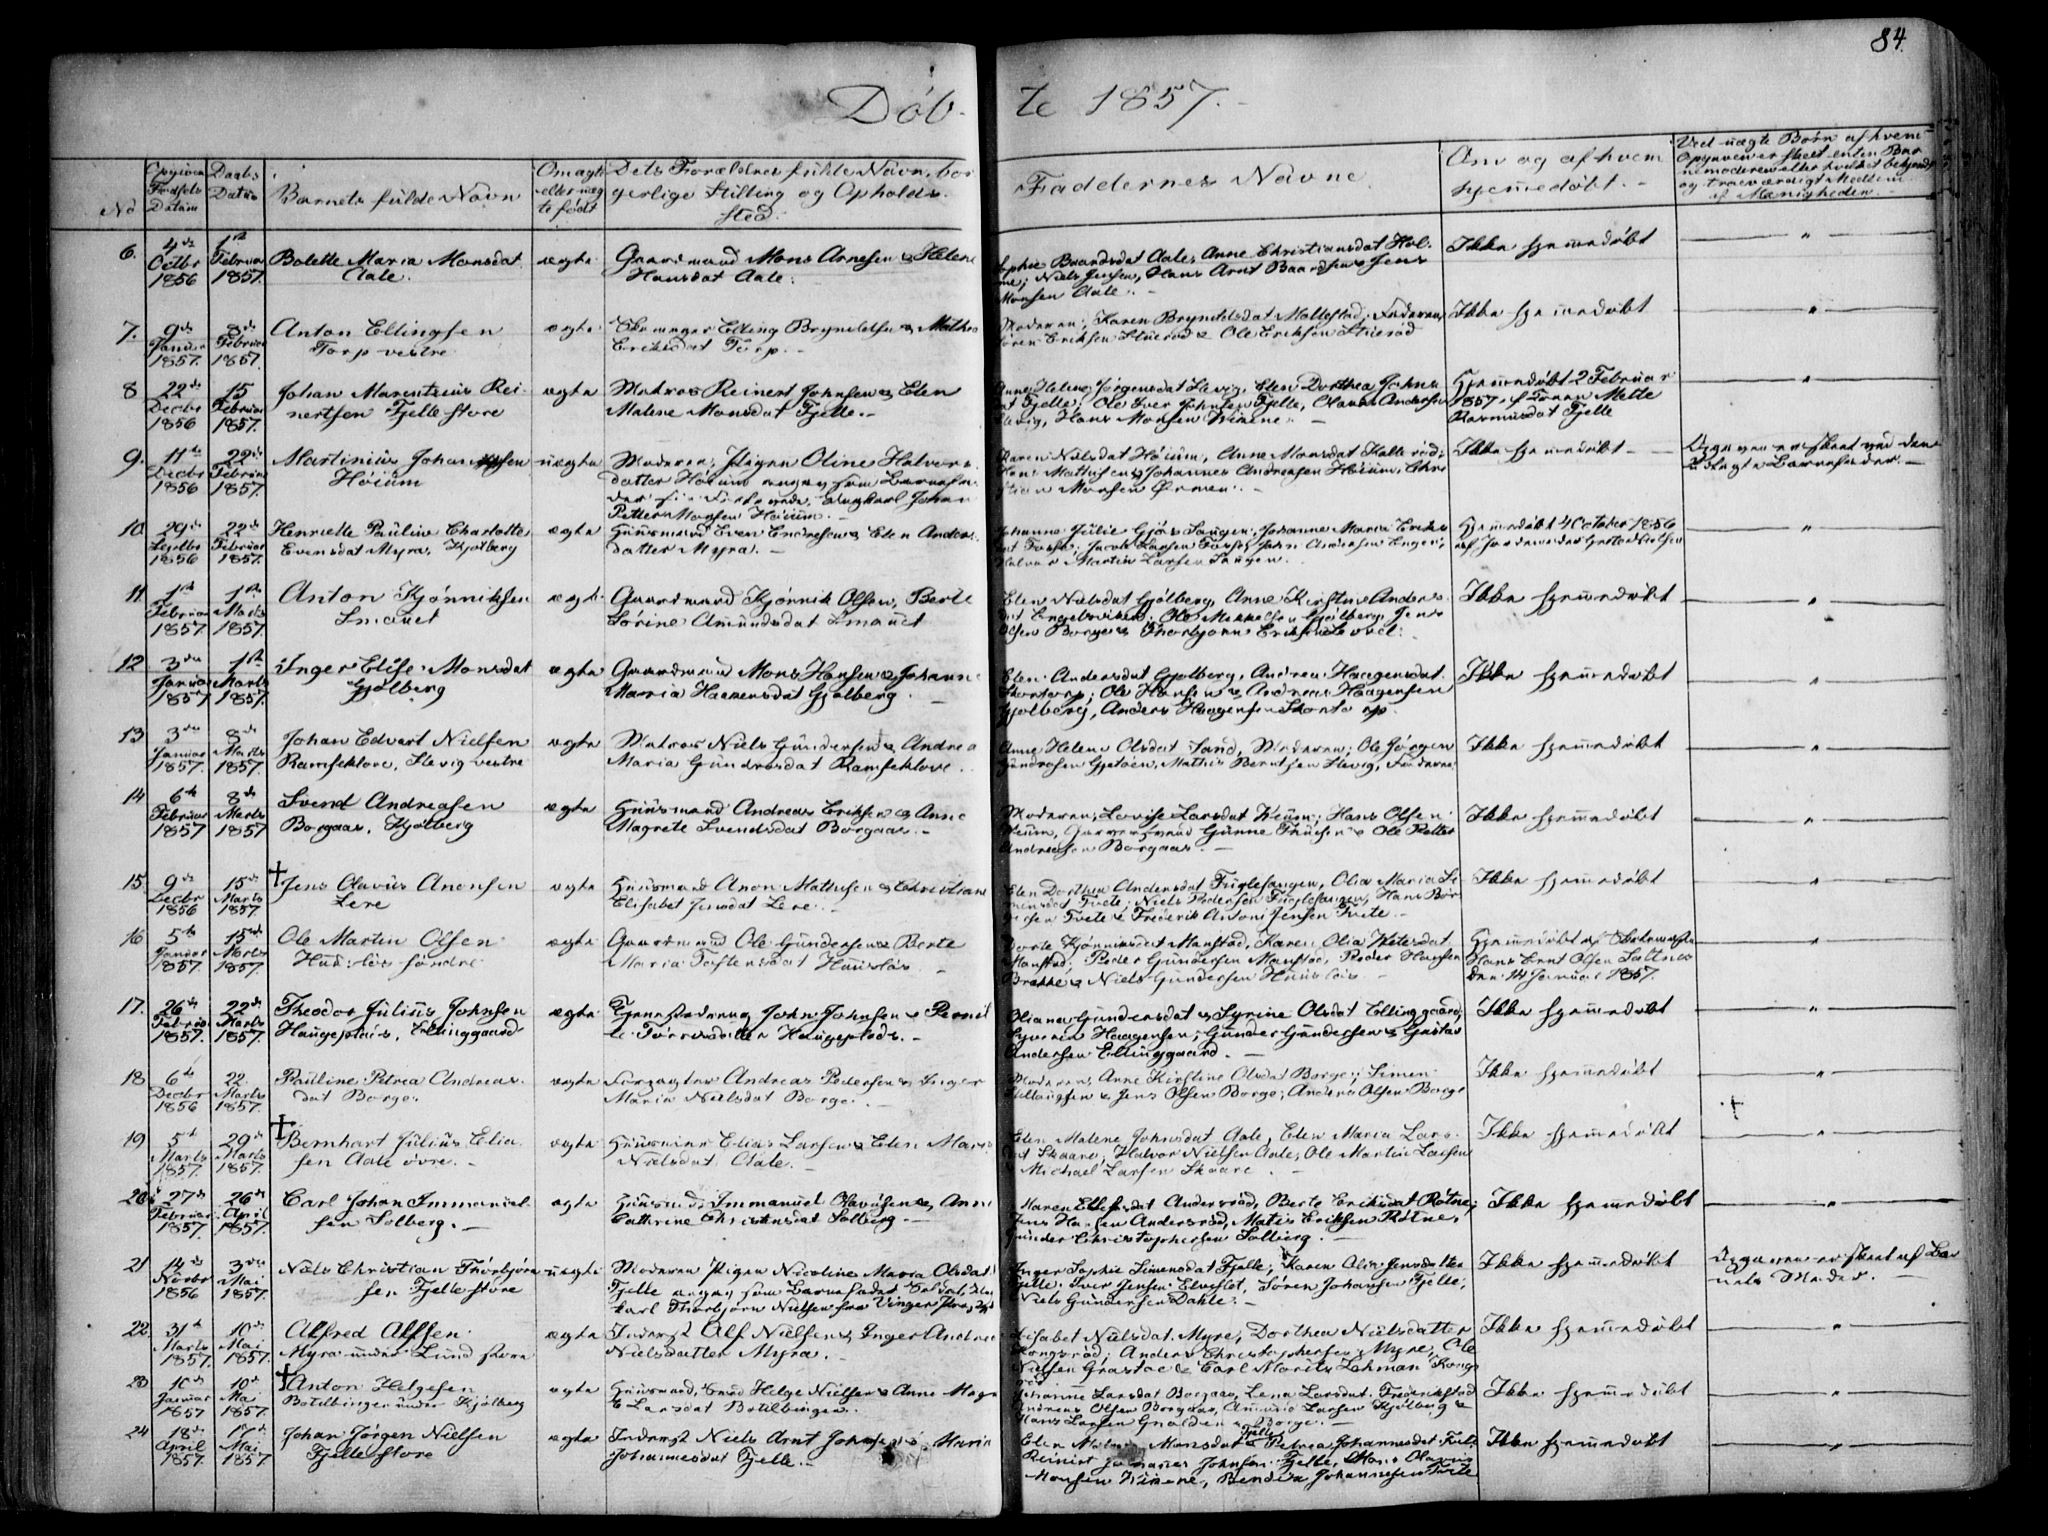 84.
Døb- te 1857.
No
Opgiven Fødsels Datum
Daabs Datum
Barnets fulde Navn
Om ægte eller uægte født
Dets Forældres fulde Navn, borgerlige Stilling og Opholds-Sted.
Faddernes Navne
Om og af hvem hjemmedøbt.
Ved uægte Børn af hvem Opgaven er skeet enten Barnemoderen eller
og troeværdigt Medlem af Menigheden.
6. 4de Octbr 1856 1ste Februar 1857. Bolette Maria Monsdat Aale. ægte Gaardmand Mons Arnesen & Helene Hansdat Aale.
Sophie Baardsdat Aale, Anne Christiansdat Hol-
me; Niels Jensen, Hans Arnt Baardsen & Jens
Monsen Aale. Ikke hjemmedøbt "
7. 9de Januar 1857. 8de Februar 1857. Anton Ellingsen Torp vestre ægte Elling Bryndelsen & Mathea Eriksdat Torp.
Moderen; Karen Bryndelsdat Mallestad; Faderen,
Søren Eriksen & Ole Eriksen Ikke hjemmedøbt "
8 22de Decbr 1856 15 Februar 1857. Johan Marentius Reinertsen Fjelle store ægte Matros Reinert Johnsen & Elen Malene Monsdat Fjelle.
Anne Helene Jørgensdat Slevig, Elen Dorthea Johns-
dat Fjelle; Ole Iver Johnsen Fjelle, Olaus Andersen
Slevig, Hans Monsen Hjemmedøbt 2 Februar 1857. af Mette Rasmusdat Fjelle "
9. 11te Decbr 1856 22de Februar 1857. Martinius Johansen Høium uægte Moderen; Pigen Oline Halvorsdatter Høium angav som Barnefader Ungkarl Johan Petter Monsen Høium.
Karen Nielsdat Høium, Anne Monsdat Kallerød;
Hans Mathisen & Johannes Andreasen Høium, Chri-
stian Monsen Ørmen. Ikke hjemmedøbt Opgaven er skeet ved den Barnefader.
10. 29de Septbr 1856 22de Februar 1857. Henriette Pauline Charlotte Evensdat Myra, Kjølberg ægte Huusmand Even Endresen & Elen Andersdatter Myra.
Johanne Julie Gjøs Johanne Maria Eriks-
dat Fosse; Jacob Larsen Fosse, John Andersen Enger,
Halvor Martin Larsen Hjemmedøbt 4 October 1856 "
11. 1ste Februar 1857. 1ste Marts 1857. Anton Kjønniksen Smauet ægte Gaardmand Kjønnik Olsen, Berte Sørine Amundsdat Smauet
Elen Nielsdat Gjølberg, Anne Kirstine Anders-
dat Engelsviken; Ole Mikkelsen Gjølberg, Jens
Olsen Borge & Thorbjørn Eriksen Ikke hjemmedøbt "
12 3die Januar 1857 1ste Marts 1857. Inger Elise Monsdat Gjølberg ægte Gaardmand Mons Hansen & Johanne Maria Gjølberg.
Elen Andersdat Gjølberg, Andrea Haagensdat
Skontorp; Ole Hansen & Andreas Haagensen
Gjølberg, Anders Haagensen Skontorp. Ikke hjemmedøbt "
13 3die Januar 1857. 8de Marts 1857. Johan Edvart Nielsen Ramseklove, Slevig vestre ægte Matros Niels Gundersen & Andrea Maria Gundrosdat Ramseklove.
Anne Helene Olsdat Sand, Moderen; Ole Jørgen
Gundrosen Gjetøen, Mathis Berntsen Slevig, Faderen. Ikke hjemmedøbt "
14 6te Februar 1857 8de Marts 1857 Svend Andreasen Borgaas, Kjølberg ægte Huusmand Andreas Eriksen & Anne Magrete Svendsdat Borgaas.
Moderen; Lovise Larsdat Hans Olsen
Gunne & Ole Petter
Andreasen Borgaas. Ikke hjemmedøbt "
15. 9de Decbr 1856 15de Marts 1857. † Jens Olavus Anonsen Lere ægte Huusmand Anon Mathisen & Christiane Elisabet Jensdat Lere.
Elen Dorthea Andersdat Fuglesangen, Olia Maria Si-
mensdat Tvete; Niels Pedersen Fuglesangen, Hans Bør-
gesen Tvete & Frederik Antoni Jensen Tvete. Ikke hjemmedøbt "
16 5te Januar 1857. 15de Marts 1857. Ole Martin Olsen Huusløs søndre ægte Gaardmand Ole Gundersen & Berte Maria Tostensdat Huusløs
Dorte Kjønniksdat Manstad, Karen Olia
Manstad; Peder Gundersen Manstad, Peder Hansen
Brekke & Niels Gundersen Huusløs. Hjemmedøbt af Hans Ernt Olsen den 14 Januar 1857. "
17. 26de Februar 1857. 22de Marts 1857. Theodor Julius Johnsen Haugeplads, Ellinggaard ægte John Johnsen & Haugeplads.
Oliane Gundersdat & Syrine Olsdat Ellinggaard,
Syveren Haagensen, Gunder Gundersen & Gustav
Andersen Ellinggaard. Ikke hjemmedøbt "
18 6te Decbr 1856 22. Marts 1857. Pauline Petrea Andreasdat Borge. ægte Andreas Pedersen & Inger Maria Nielsdat Borge.
Moderen, Anne Kirstine Olsdat Borge; Simen
& Jens Olsen Borge; Anders Olsen Borge Ikke hjemmedøbt "
†
19 5te Marts 1857. 29de Marts 1857. † Bernhart Julius Eliasen Aale øvre. ægte Huusmand Elias Larsen & Elen Maria Nielsdat Aale.
Elen Malene Johnsdat Aale, Elen Maria Lars-
dat Skaare; Halvor Nielsen Aale, Ole Martin Larsen
& Michael Larsen Skaare. Ikke hjemmedøbt "
20 27de Februar 1857. 26de April 1857. Carl Johan Immanuelsen Solberg. ægte Huusmd. Immanuel Olavusen & Anne Cathrine Christensdat Solberg.
Maren Andersrød, Berte Eriksdat Røtne;
Jens Hansen Andersrød, Matis Eriksen Røtne,
Gunder Christophersen Solberg. Ikke hjemmedøbt "
21 14de Novbr 1856 3die Mai 1857. Niels Christian Thorbjørnsen Fjelle store uægte Moderen Pigen Nicoline Maria Olsdat Fjelle angav som Barnefader Thorbjørn Nielsen fra Vinger
Inger Sophie Simensdat Fjelle, Karen Olia Jensdatter
Fjelle. Iver Jensen Søren Johansen Fjelle,
Niels Gundersen Dahle. Ikke hjemmedøbt Opgaven er skeet af Barnets Moder.
22 31te Marts 1857. 10de Mai 1857. Alfred Alfsen. Myra under Lund store ægte Inderst Alf Nielsen & Inger Andrea Nielsdatter Myra.
Elisabet Nielsdat Myre, Dorthea Nielsdatter
Kongsrød; Anders Christophersen Myre, Ole
Nielsen & Carl Morits Lehman Ikke hjemmedøbt "
23 10de Januar 1857 10de Mai 1857. † Anton Helgesen Botilbingen under Kjølberg ægte Huusmand, Helge Nielsen & Anne Larsdat Botilbingen.
Johanne Larsdat Borgaas, Lena Larsdat Frederikstad
Andreas Olsen Borgaas, Amund Larsen Kjølberg &
Hans Larsen Borge. Ikke hjemmedøbt "
24 18de April 1857. 17de Mai 1857. Johan Jørgen Nielsen Fjelle store ægte Inderst Niels Arnt Johnsen & Maria Johannesdat Fjelle.
Elen Malene Monsdat Fjelle & Petrea Johannesdat
Reinert Johnsen Fjelle, Hans Olavus
Monsen Johannesen Tvete Ikke hjemmedøbt "